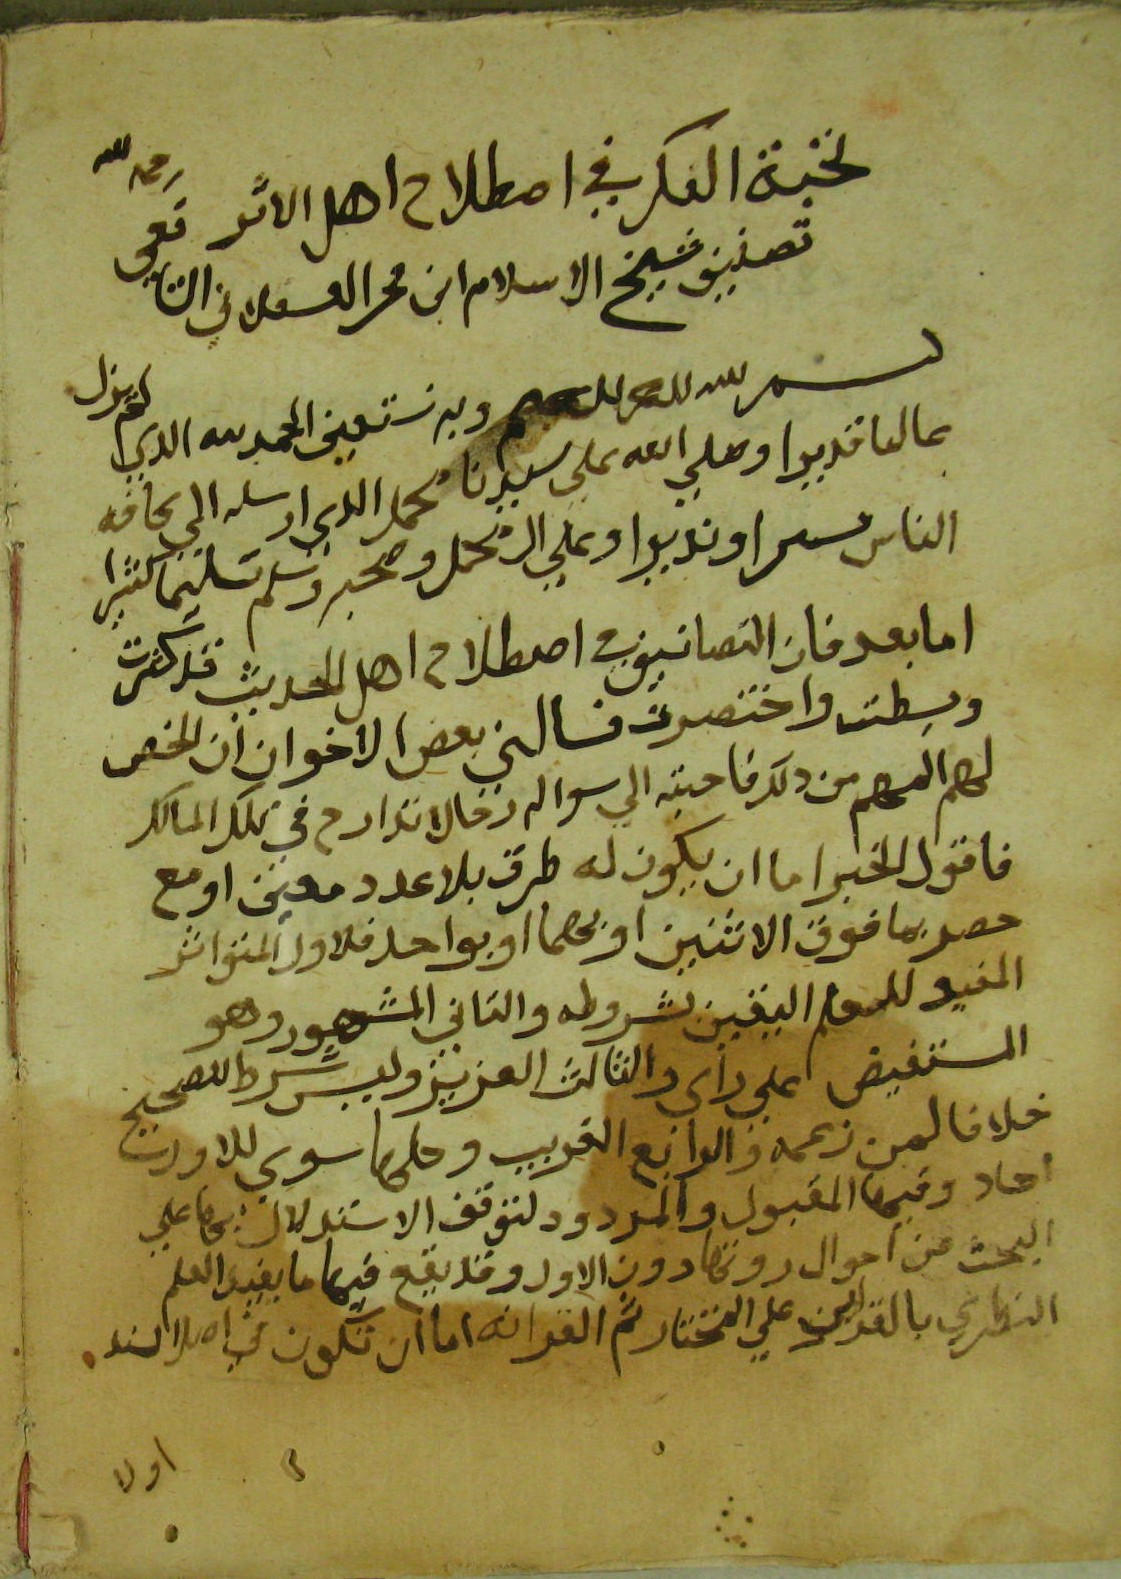 نخبة الفكر في اصطلاح اهل الاثر رحمه الله
تصنيف شيخ الاسلام ابن حجر العسقلاني الشافعي
بسم الله الرحمن الرحيم وبه نستعين الحمد لله الذي لم يزل
عالما قديرا وصلي الله علي سيدنا محمد الذي ارسله الي كافه
الناس بشيرا ونذيرا وعلي ال محمد وصحبه وسلم تسليما كثيرا
اما بعد فان التصانيف في اصطلاح اهل الحديث قد كثرت
وبسطت واختصرت فسالني بعض الاخوان ان الخص
لهم المهم من ذلك فاجبته الي سواله رجا الاندارج في تلك المسالك
فاقول الخبر اما ان يكون له طرق بلا عدد معين او مع
حصر بما فوق الاثنين او بهما او بواحد فلاول المتواتر
المفيد للعلم اليقين بشروطه والثاني المشهور وهو
المستفيض علي راي والثالث العزيز وليس شرط للصحيح
خلافا لمن زعمه والرابع الغريب وكلها سوي الاول
احاد وفيها المقبول والمردود لتوقف الاستدلال بها علي
البحث عن احوال رواتها دون الاول وقد يقع فيها ما يفيد العلم
النظري بالقراين علي المختار ثم الغرابة اما ان تكون في اصل السند
اولا